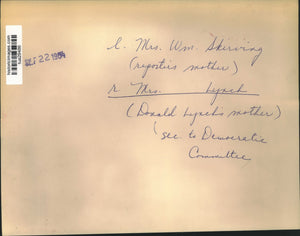 SEP 22 1954
l. Mrs. Wm. Skirving
(reporter's mother)
r. Mrs. Lynch
(Donald Lynch's mother)
(sec. to Democratic
Committee)